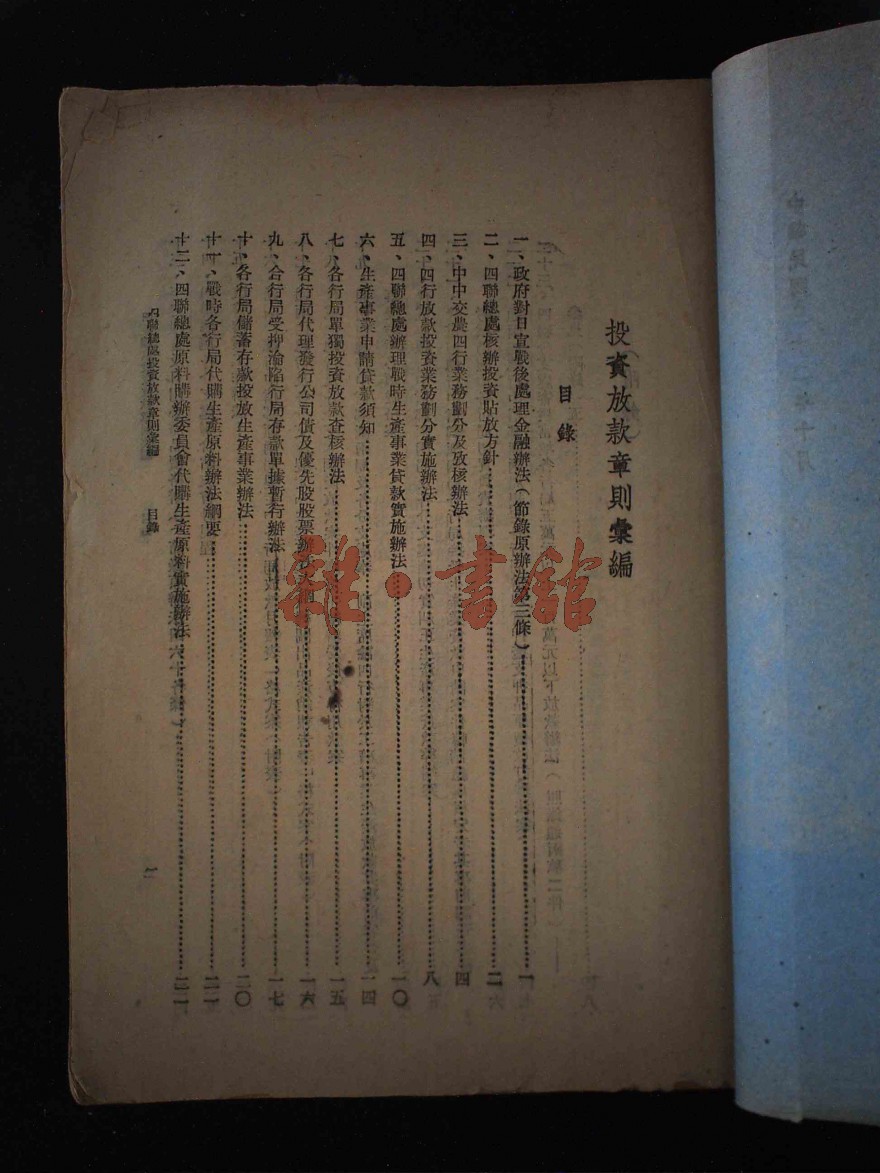 投資放款章則彙編
目錄
一、政府對日宣戰後處理金融辦法(節錄原辦法第三條)……一
二、四聯總處核辦投資貼放方針……二
三、中中交農四行業務劃分及攷核辦法……四
四、四行放款投資業務劃分實施辦法……八
五、四聯總處辦理戰時生產事業貸款實施辦法……一〇
六、生產事業申請貸款須知……一四
七、各行局單獨投資放款查核辦法……一五
八、各行局代理發行公司債及優先股股票辦法大綱……一六
九、各行局受抑淪陷行局存款單據暫行辦法……一七
十、各行局儲蓄存款投放生產事業辦法……二〇
十一、戰時各行局代購生產原料辦法綱要……二一
十二、四聯總處原料購辦委員會代購生產原料實施辦法……二二
四聯總處投資放款章則彙編 目錄 一
雜·書館